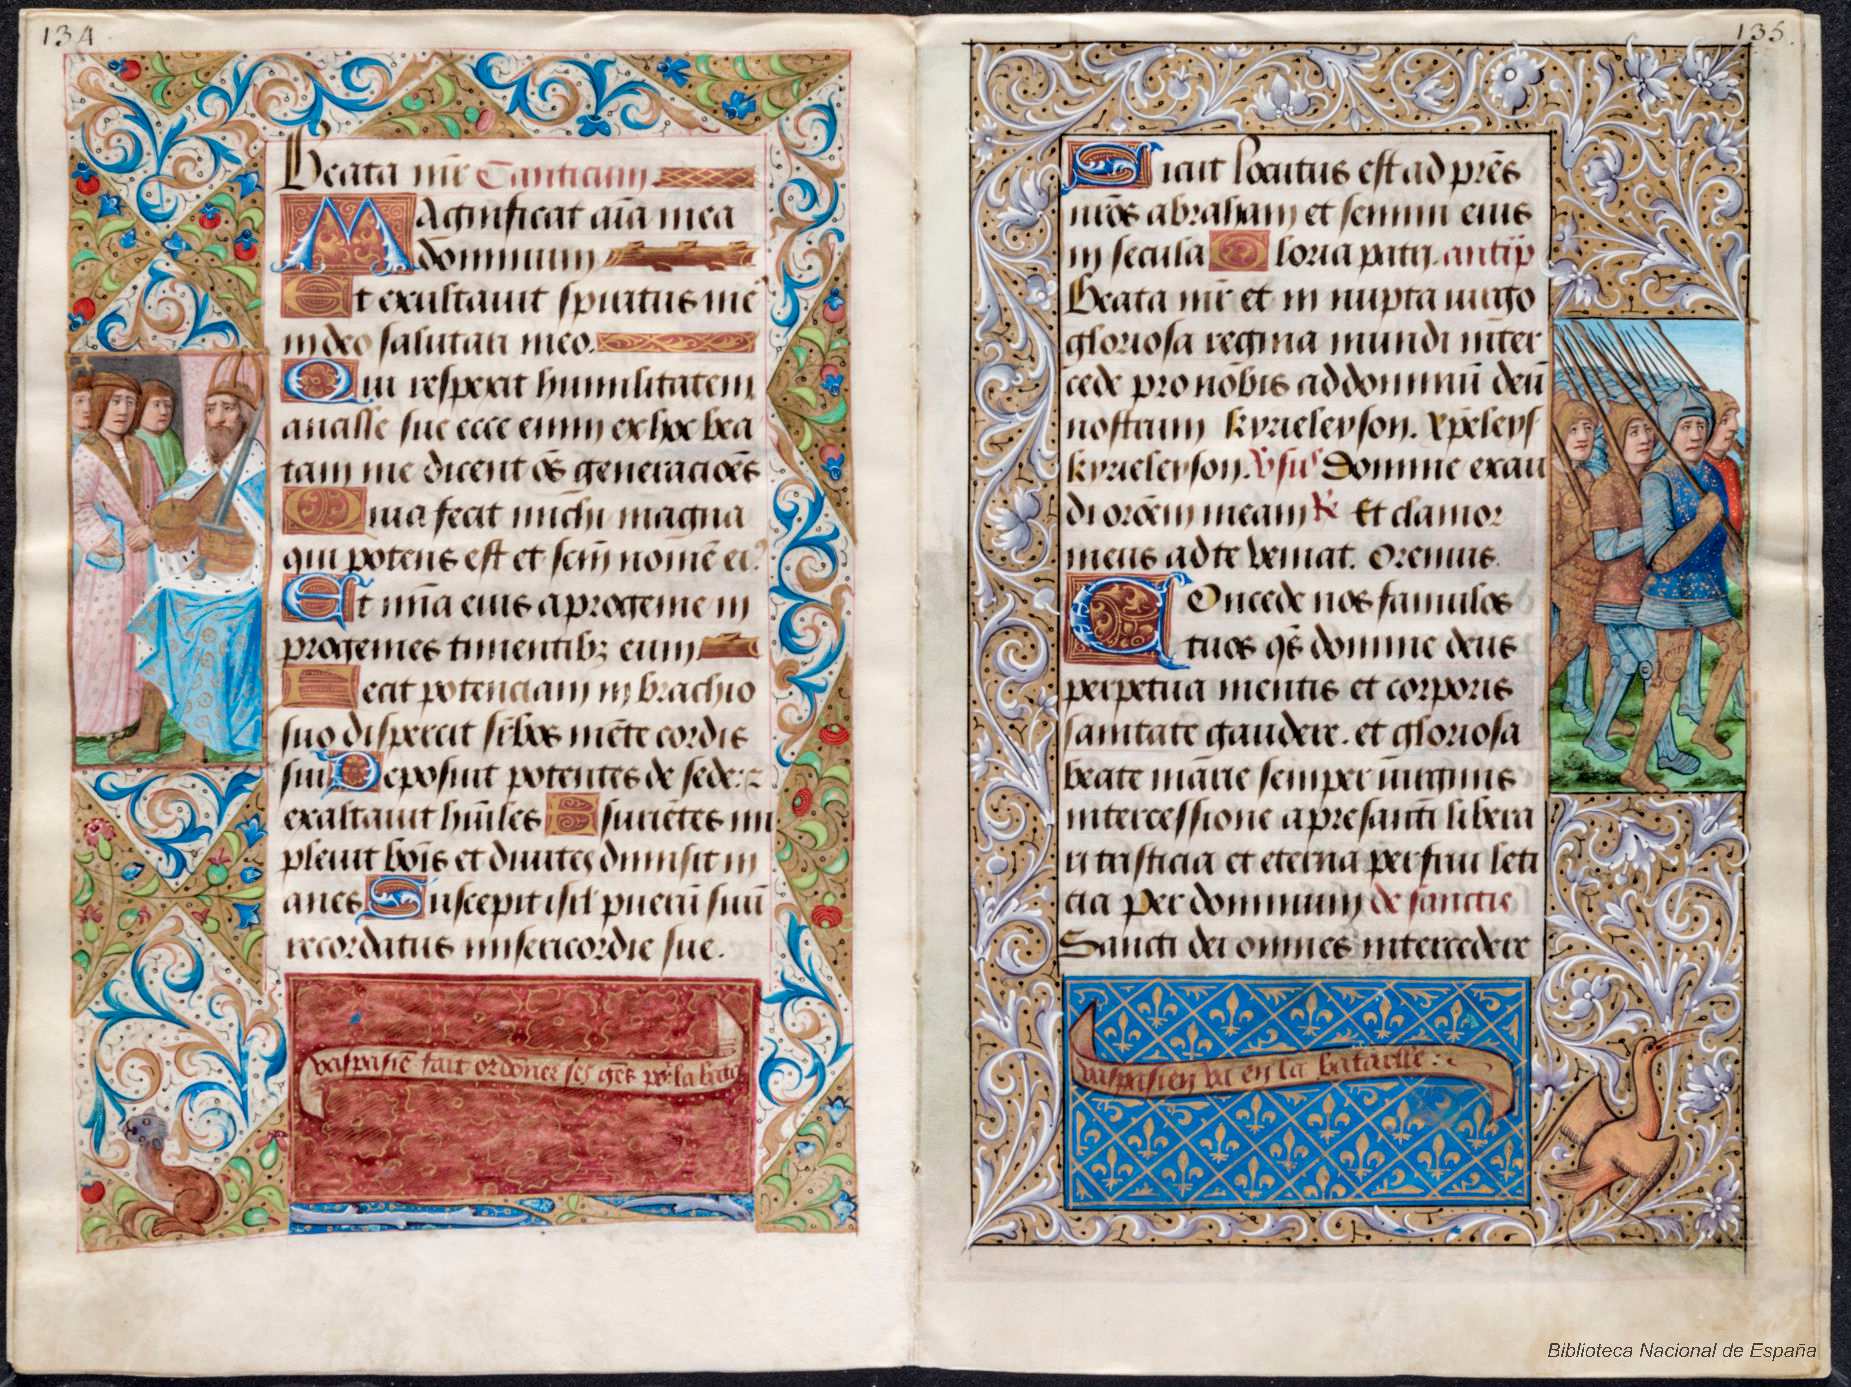 134
Beata mr̄ Canticum
Magnificat aīa mea
dominum
Et exultauit spiritus me᷒
in deo salutari meo.
Qui respexit humilitatem
ancille sue ecce enim ex hoc bea
tam me dicent oēs generacioēs
Quia fecit michi magna
qui potens est et scm̄ nomē ei᷒
Et mīa eius a progenie in
progenies timentibꝫ eum
Fecit potenciam in brachio
suo dispersit suꝑbos mēte cordis
sui Deposuit potentes de sede: ⁊
exaltauit humīles Esuriētes im
pleuit boīs et diuites dimisit in
anes Suscepit isrl̄ puerū suū
recordatus misericordie sue.
vaspasiē fait ordōner ses gēs por la bata
135.
Sicut locutus est ad prēs
nrōs abraham et semini eius
in secula Gloria patri. antiph̄
Beata mr̄ et in nupta uirgo
gloriosa regina mundi inter
cede pro nōbis ad dominū deū
nostrum kyrieleyson. xp̄eleys
kyrieleyson. v̄sus Domine exau
di orōem meam R̸ Et clamor
meus ad te veniat. Oremus.
Concede nos famulos
tuos qs̄ domine deus
perpetua mentis et corporis
sanitate gaudere. et gloriosa
beate marie semper uirginis
intercessione a presenti libera
ri tristicia et eterna perfrui leti
cia Per dominum de sanctis
Sancti dei omnes intercedere
vaspasien va en la bataille
Biblioteca Nacional de España